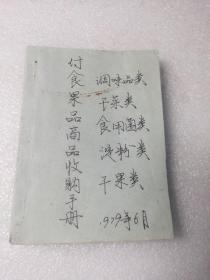 付食果品商品收购手册
调味品类
干菜类
食用菌类
淀粉类
干果类
1979年6月